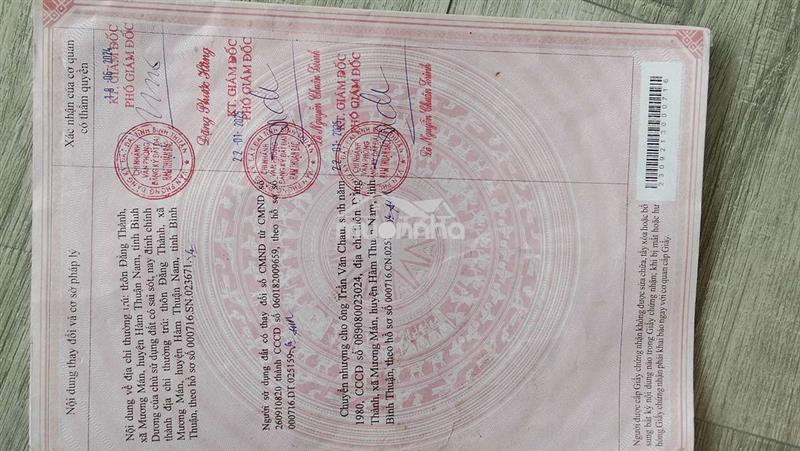 Nội dung thay đổi và cơ sở pháp lý
Xác nhận của cơ quan
có thẩm quyền
Nội dung về địa chỉ thường trú: thôn Đằng Thành,
xã Mương Mán, huyện Hàm Thuận Nam, tỉnh Bình
Dương của chủ sử dụng đất có sai sót, nay đính chính
thành địa chỉ thường trú: thôn Đằng Thành, xã
Mương Mán, huyện Hàm Thuận Nam, tỉnh Bình
Thuận, theo hồ sơ số 000716.SN.023671
18-06-2024
KT. GIÁM ĐỐC
PHÓ GIÁM ĐỐC
CHI NHÁNH
VĂN PHÒNG
ĐĂNG KÝ ĐẤT ĐAI
HÀM THUẬN BẮC
Đặng Phước Hùng
Người sử dụng đất có thay đổi số CMND từ CMND số
260910820 thành CCCD số 060182009659, theo hồ sơ số
000716.DT.025159
22-01-2025
KT. GIÁM ĐỐC
PHÓ GIÁM ĐỐC
CHI NHÁNH
VĂN PHÒNG
ĐĂNG KÝ ĐẤT ĐAI
Lê Nguyễn Chuẩn Trinh
Chuyển nhượng cho ông Trần Văn Chau, sinh năm
1980, CCCD số 089080023024, địa chỉ: thôn Đằng
Thành, xã Mương Mán, huyện Hàm Thuận Nam, tỉnh
Bình Thuận, theo hồ sơ số 000716.CN.0251
22-01-
KT. GIÁM ĐỐC
PHÓ GIÁM ĐỐC
CHI NHÁNH
VĂN PHÒNG
ĐĂNG KÝ ĐẤT ĐAI
Lê Nguyễn Chuẩn Trinh
Người được cấp Giấy chứng nhận không được sửa chữa, tẩy xóa hoặc bổ
sung bất kỳ nội dung nào trong Giấy chứng nhận; khi bị mất hoặc hư
hỏng Giấy chứng nhận phải khai báo ngay với cơ quan cấp Giấy.
2309213000716